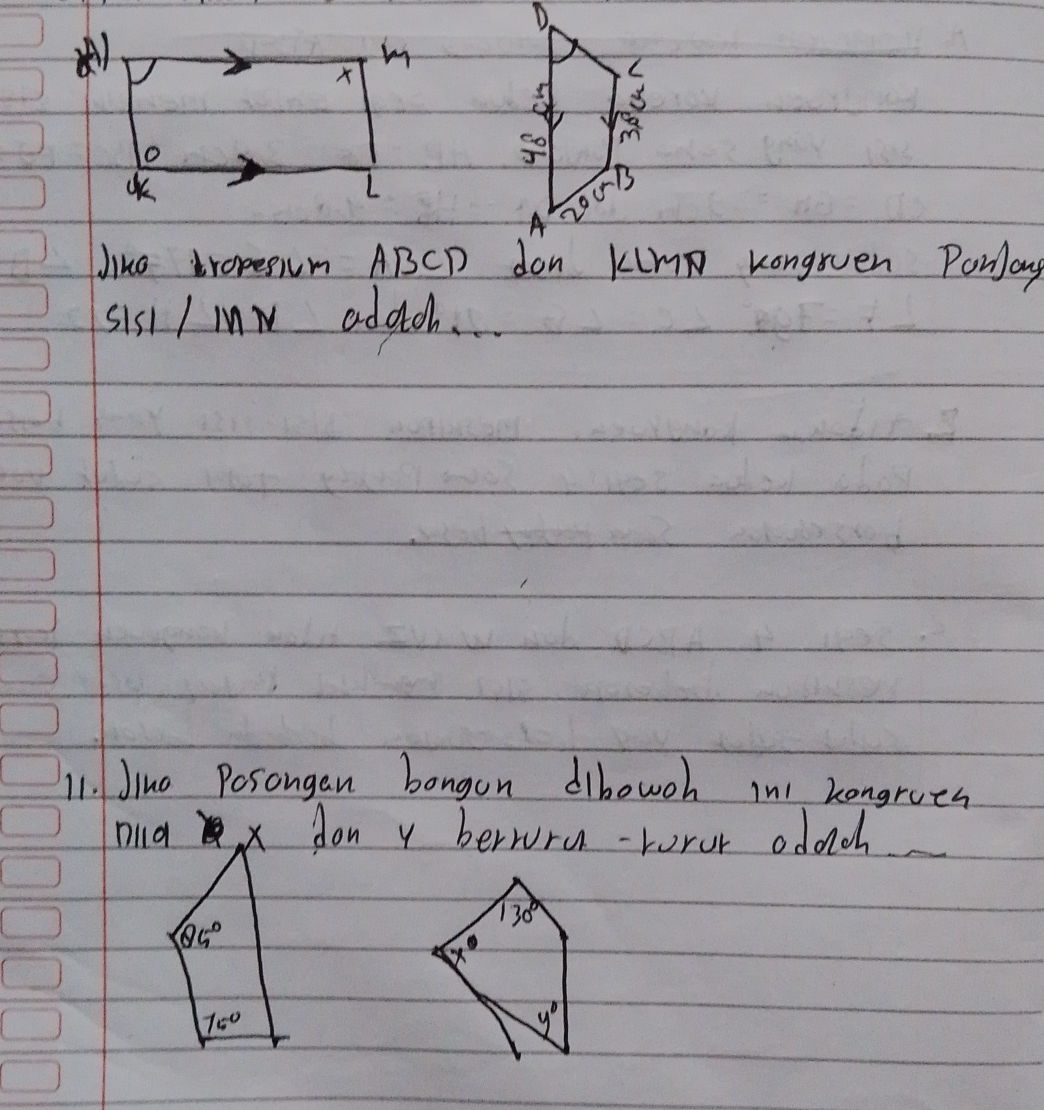 M
x
O
K
L
D
C
48 cm
38 cm
B
A
20 cm
Jika trapesium ABCD dan KLMN kongruen Panjang
sisi / MN adalah...
11. Jika Pasangan bangun dibawah ini kongruen
nilai x dan y berturut-turut adalah
85°
75°
130°
x°
y°